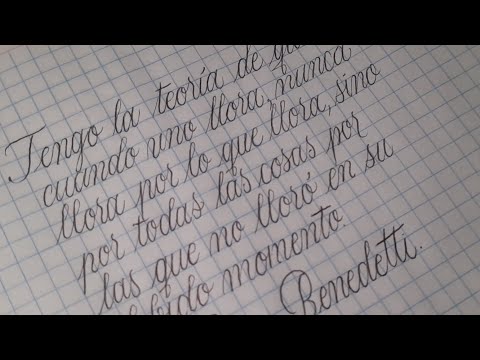 Tengo la teoría de
cuando uno llora, nunca
llora por lo que llora, sino
por todas las cosas por
las que no lloró en su
momento.
Benedetti.